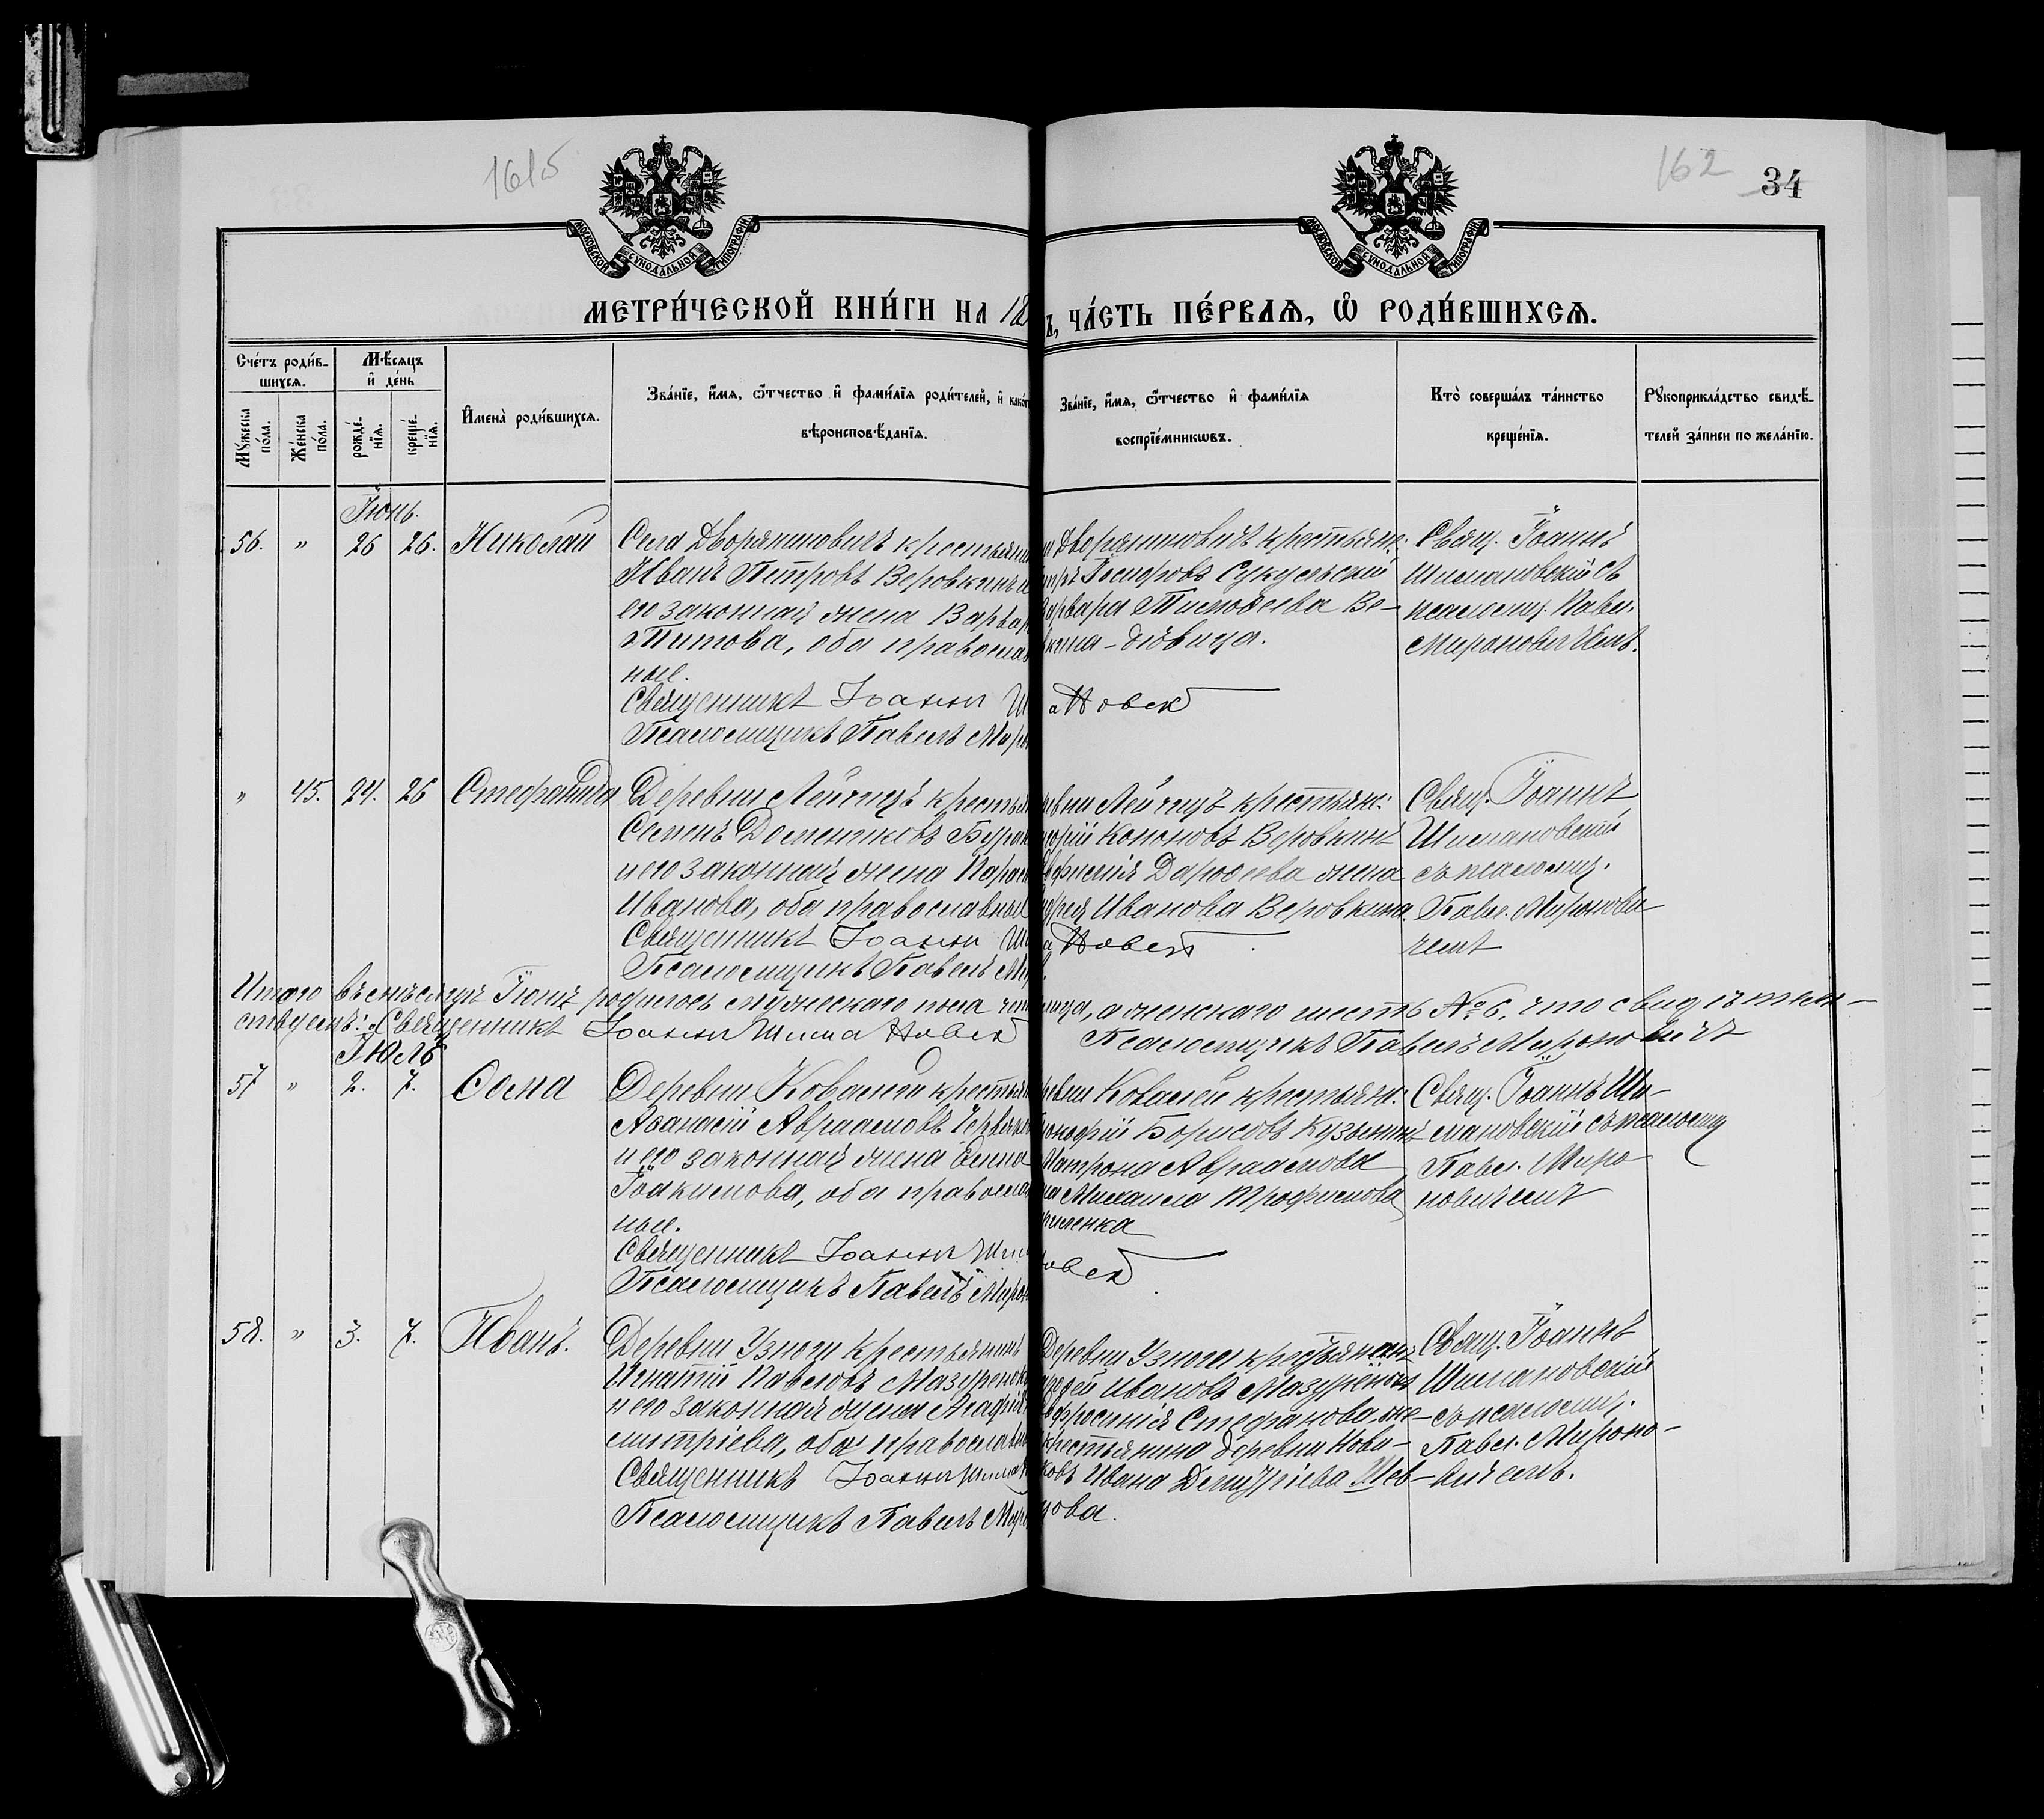 1615
162
34
МОСКОВСКОЙ СѴНОДАЛЬНОЙ ТИПОГРАФІИ
МОСКОВСКОЙ СѴНОДАЛЬНОЙ ТИПОГРАФІИ
МЕТРИ́ЧЕСКОЙ КНИ́ГИ НА 18
Ъ, ЧА́СТЬ ПЕ́РВАѦ, Ѡ҆ РОДИ́ВШИХСѦ.
Сче́тъ роди́в-
шихсѧ.
Мꙋ́жеска по́ла.
Же́нска по́ла.
Мѣ́сѧцъ
и҆ де́нь
рожде́-
нїѧ.
креще́-
нїѧ.
И҆мена̀ роди́вшихсѧ.
Зва́нїе, и҆́мѧ, ѻ҆́тчество и҆ фами́лїѧ роди́телей, и҆ како́г
вѣроисповѣ́данїѧ.
Зва́нїе, и҆́мѧ, ѻ҆́тчество и҆ фами́лїѧ
воспрїе́мникѡвъ.
Кто̀ соверша́лъ та́инство
креще́нїѧ.
Рꙋкоприкла́дство свидѣ́-
телей за́писи по жела́нїю.
Іюнь.
56. " 26 26. Николай
Села Дворяниновичъ крестьянин
Иванъ Петровъ Веровкинъ и
его законная жена Варвар
Титова, оба православ
ные.
Священникъ Іоаннъ Ши
Псаломщикъ Павелъ Миро
Дворяниновичъ крестьяне.
Сидоровъ
Варвара Тимофеева Ве-
кина - дѣвица.
ановск
Свящ. Іоаннъ
Шимановскій съ
псаломщ. Павл.
Мироновичемъ.
" 45. 24. 26 Стефанида
Деревни Лейчицъ крестьян
Семенъ Доментіевъ
и его законная жена Парас
Иванова, оба православные
Священникъ Іоаннъ Ши
Псаломщикъ Павелъ Ми
евни Лейчицъ крестьян:
Кононовъ Веровкинъ
Евфимія жена
Иванова Веровкина.
ановск
Свящ. Іоаннъ
Шимановскій
съ псаломщ.
Павл. Миронови
чемъ
Итого въ мѣсяцѣ Іюнѣ родилось мужескаго пола чет
ица, а женскаго шесть № 6, что свидѣтель-
ствуемъ: Священникъ Іоаннъ Шимановск
Псаломщикъ Павелъ Мироновичъ
Іюль
57 " 2. 7. Ѳома
Деревни Ковалей крестьян
Аѳанасій Авраамовъ
и его законная жена Елена
Іоакимова, оба православ
ные.
Священникъ Іоаннъ Шим
Псаломщикъ Павелъ Мирон
евни Ковалей крестьян:
Борисовъ Кузьминъ
Матрона Авраамова
на Михаила Трофимова
овск
Свящ. Іоаннъ Ши-
мановскій съ псаломщ
Павл. Миро
новичемъ
58. " 3. 7. Иванъ.
Деревни Узноги крестьянинъ
Игнатій Павловъ Мазуренок
и его законная жена Агафія
митріева, оба православн
Священникъ Іоаннъ Шима
Псаломщикъ Павелъ Миро
Деревни Узноги крестьянинъ
Ивановъ Мазуренокъ
Евфросинія Стефанова, же-
крестьянина деревни Нови-
ковъ Ивана Димитріева Шев-
цова.
Свящ. Іоаннъ
Шимановскій
съ псаломщ.
Павл. Мироно-
вичемъ.